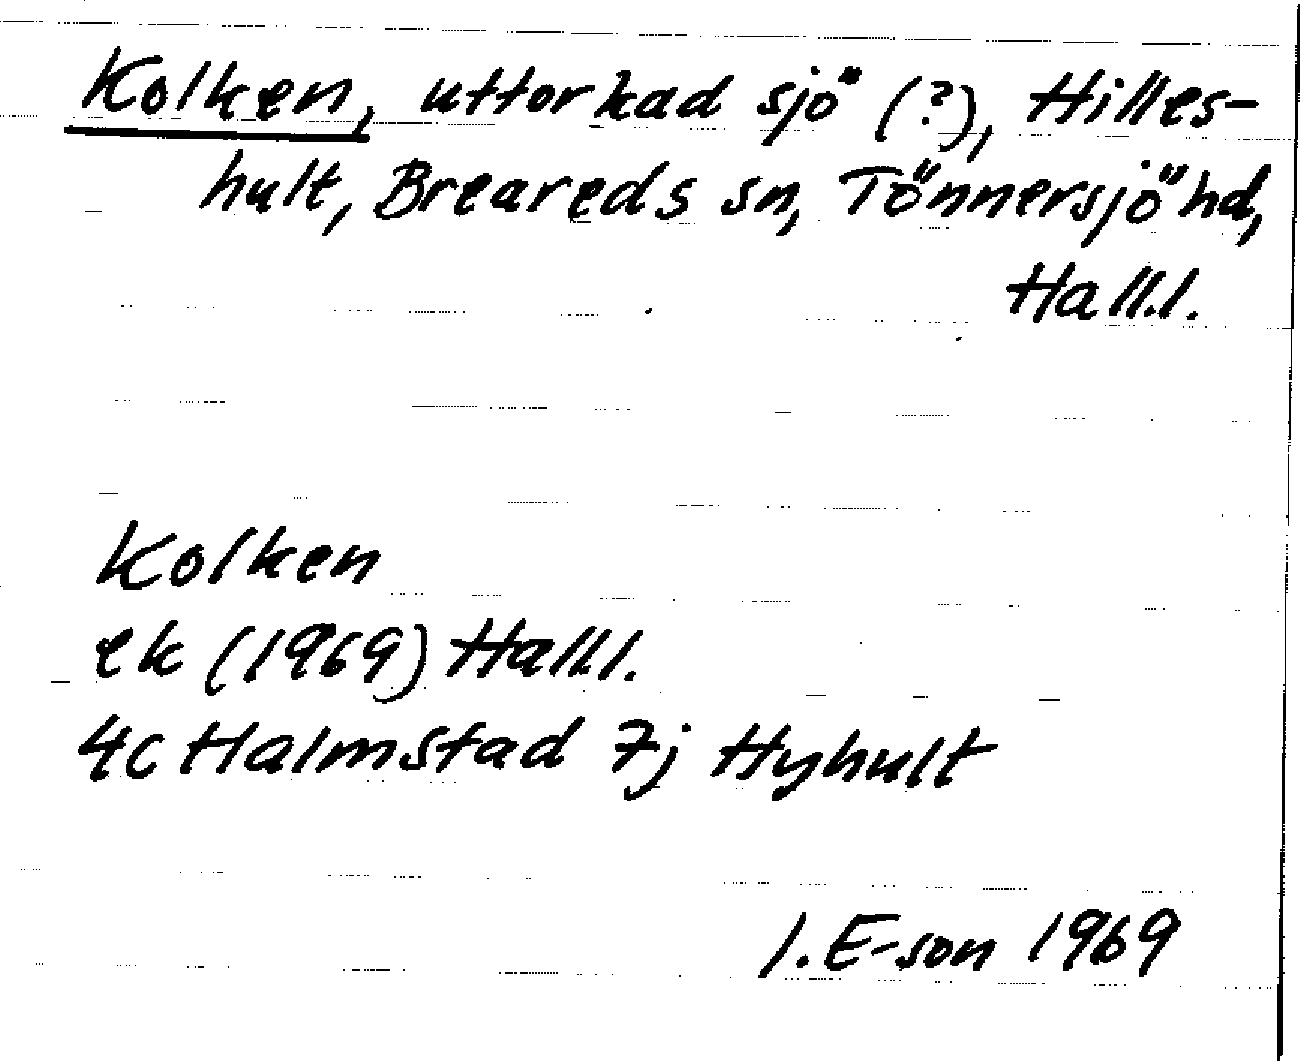 Kolken, uttorkad sjö (?), Hilles-
hult, Breareds sn, Tönnersjö hd,
Hall.l.
Kolken
ek (1969) Hall.l.
4c Halmstad 7j Hyhult
I. E-son 1969